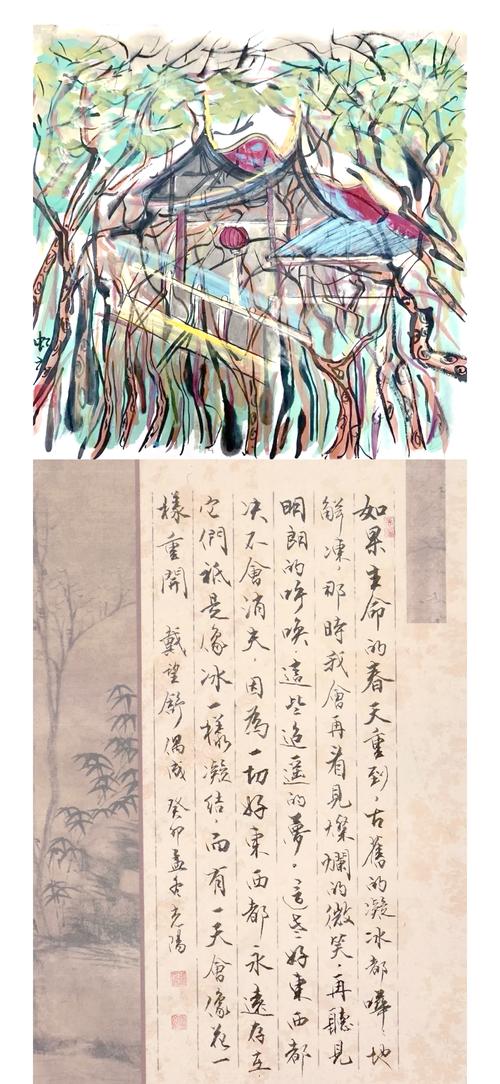 如果生命的春天重到，古舊的凝冰都嘩々地
解凍，那時我會再看見燦爛的微笑，再聽見
明朗的呼喚這些迢遥的夢。這些好東西都
决不會消失，因為一切好東西都永遠存在
它們祗是像冰一樣凝結，而有一天會像花一
樣重開 戴望舒 偶成 癸卯孟冬